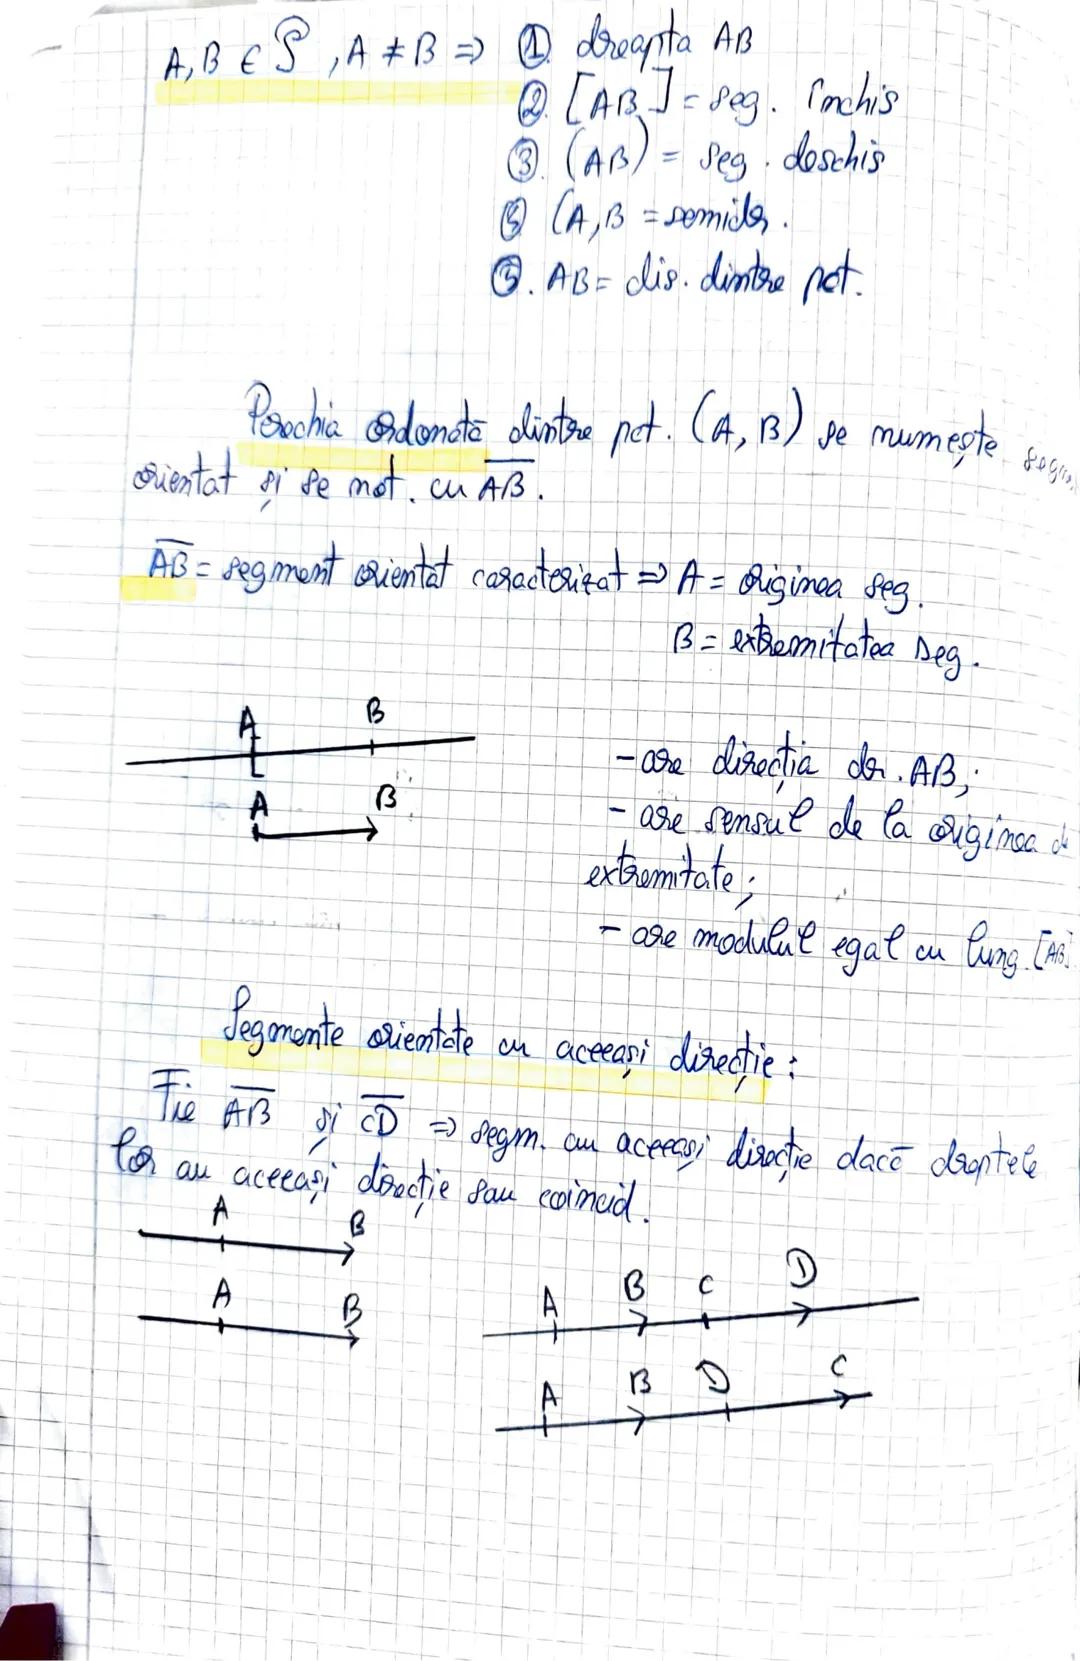 A, B ∈ P, A ≠ B ⇒ ① dreapta AB
②. [AB] = seg. închis
③. (AB) = seg. deschis
④ (A,B = semidr.
⑤. AB = dis. dintre pct.
Perechia ordonată dintre pct. (A, B) se numește segm.
orientat și se not. cu A̅B̅.
A̅B̅ = segment orientat caracterizat ⇒ A = originea seg.
B = extremitatea seg.
A B
A B
- are direcția dr. AB;
- are sensul de la originea
extremitate;
- are modulul egal cu lung. [AB]
Segmente orientate cu aceeași direcție:
Fie A̅B̅ și C̅D̅ ⇒ segm. au aceeași direcție dacă dreptele
lor au aceeași direcție sau coincid.
A B
A B
A B C D
A B D C